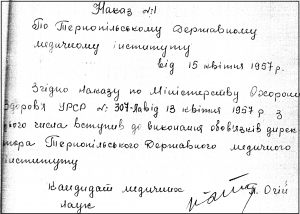 Наказ №1
По Тернопільському Державному
медичному інституту
від 15 квітня 1957р.
Згідно наказу по Міністерству Охорони
Здоров'я УРСР №: 307-Л від 13 квітня 1957 р. з
цього числа вступив до виконання обов'язків дирек
тора Тернопільського Державного медичного
інституту
Кандидат медичних
наук П. Огій